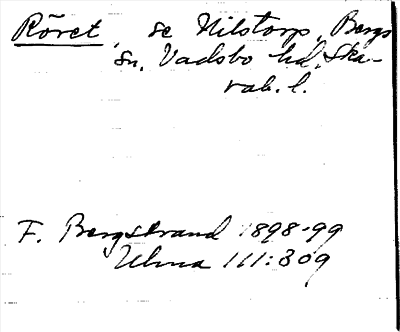 Röret, se Nilstorp, Bergs
sn, Vadsbo hd, Ska-
rab. l.
F. Bergstrand 1898-99
Ulma 111:309